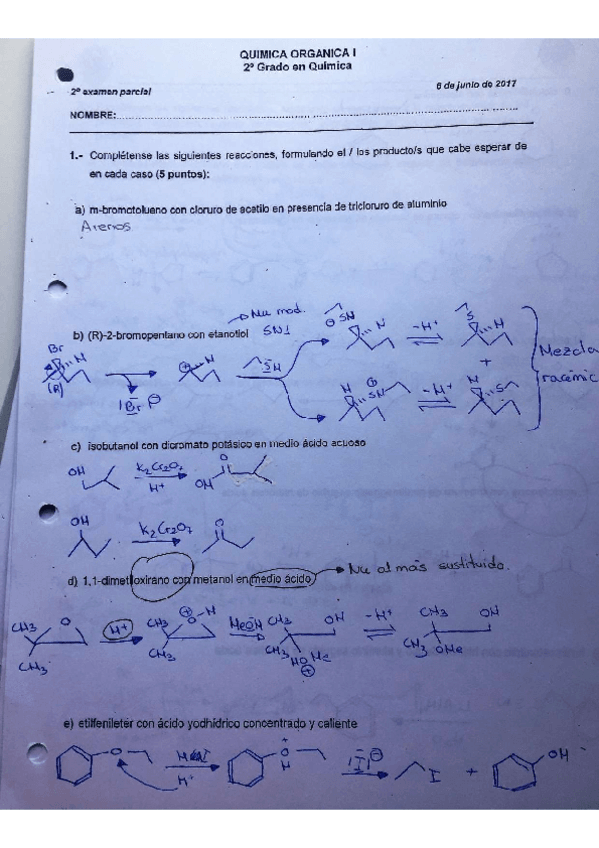 QUIMICA ORGANICA I
2º Grado en Química
2º examen parcial
6 de junio de 2017
NOMBRE:
1.- Complétense las siguientes reacciones, formulando el / los producto/s que cabe esperar de
en cada caso (5 puntos):
a) m-bromotolueno con cloruro de acetilo en presencia de tricloruro de aluminio
Arenos
Nu mod.
b) (R)-2-bromopentano con etanotiol SN1
Br H (R)
Br ⊖
⊕ H
SH
⊕ SH H
-H+
S H
+
H ⊕ SH
-H+
H S
Mezcla
racémic
c) isobutanol con dicromato potásico en medio ácido acuoso
OH K2Cr2O7 H+ O OH
OH K2Cr2O7 O
d) 1,1-dimetiloxirano con metanol en medio ácido → Nu al más sustituido.
CH3 CH3 O H+ CH3 CH3 ⊕ O-H MeOH CH3 CH3 OH HO Me ⊕ -H+ CH3 CH3 OMe OH
e) etilfeniléter con ácido yodhídrico concentrado y caliente
O HI H+ O + H I ⊖ I + OH